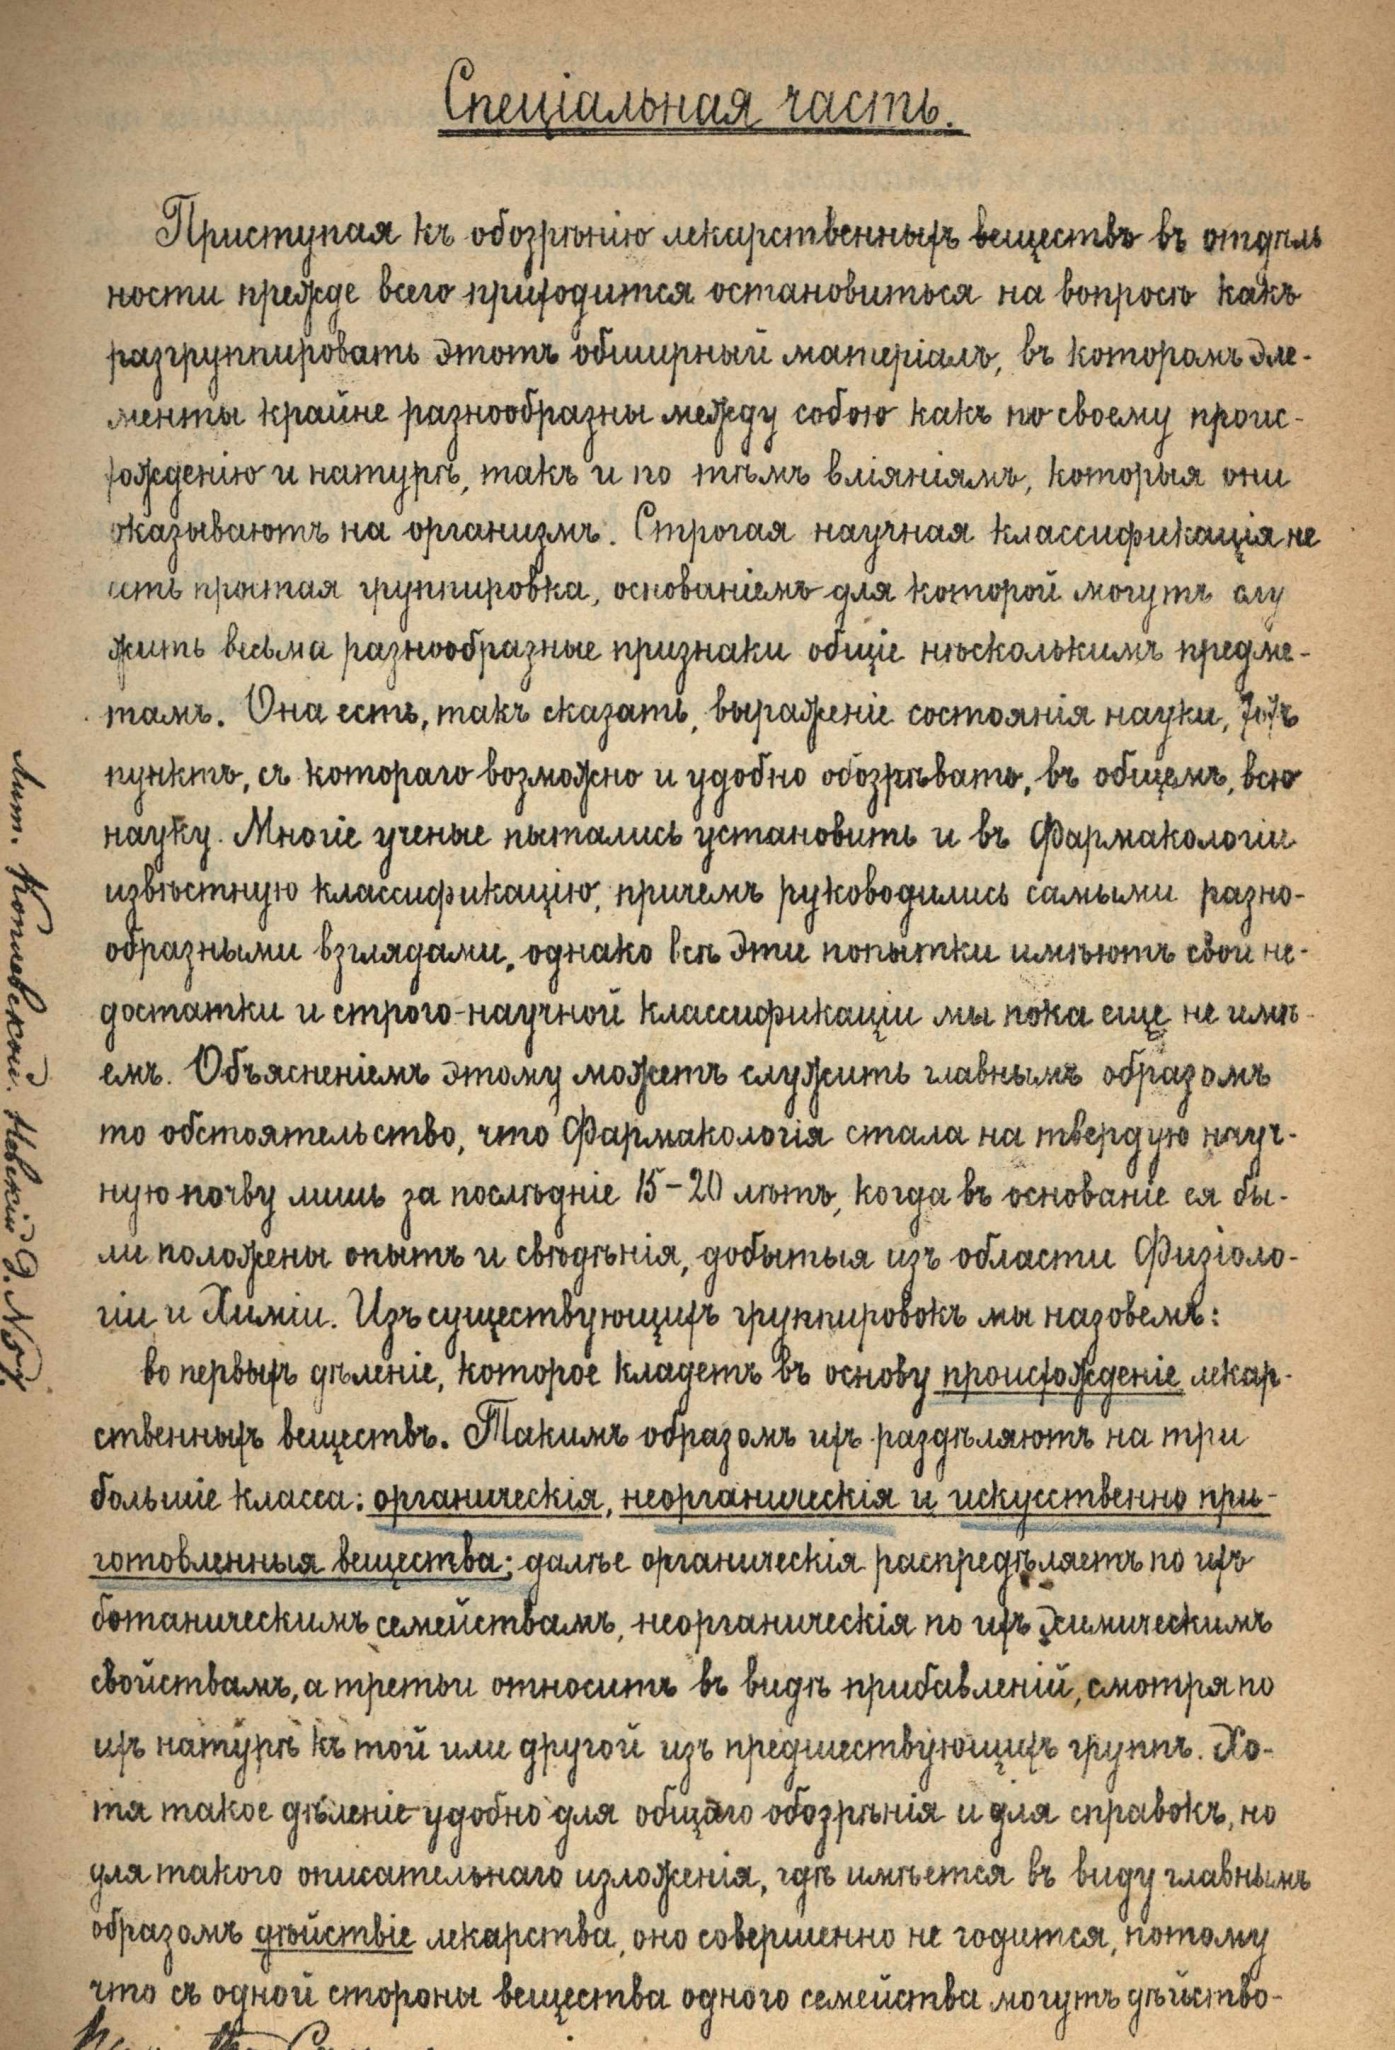 Спеціальная часть.
Приступая къ обозрѣнію лекарственныхъ веществъ въ отдѣль
ности прежде всего приходится остановиться на вопросѣ какъ
разгруппировать этотъ обширный матеріалъ, въ которомъ эле-
менты крайне разнообразны между собою какъ по своему проис-
хожденію и натурѣ, такъ и по тѣмъ вліяніямъ, которыя они
оказываютъ на организмъ. Строгая научная классификація не
есть простая группировка, основаніемъ для которой могутъ слу
жить весьма разнообразные признаки общіе нѣсколькимъ предме-
тамъ. Она есть, такъ сказать, выраженіе состоянія науки,
пунктъ, съ котораго возможно и удобно обозрѣвать, въ общемъ, всю
науку. Многіе ученые пытались установить и въ Фармакологіи
извѣстную классификацію, причемъ руководились самыми разно-
образными взглядами, однако всѣ эти попытки имѣютъ свои не-
достатки и строго-научной классификаціи мы пока еще не имѣ-
емъ. Объясненіемъ этому можетъ служить главнымъ образомъ
то обстоятельство, что Фармакологія стала на твердую науч-
ную почву лишь за послѣдніе 15-20 лѣтъ, когда въ основаніе ея бы-
ли положены опытъ и свѣдѣнія, добытыя изъ области Физіоло-
гіи и Химіи. Изъ существующихъ группировокъ мы назовемъ:
во первыхъ дѣленіе, которое кладетъ въ основу происхожденіе лекар-
ственныхъ веществъ. Такимъ образомъ ихъ раздѣляютъ на три
большіе класса: органическія, неорганическія и искусственно при-
готовленныя вещества; далѣе органическія распредѣляетъ по ихъ
ботаническимъ семействамъ, неорганическія по ихъ химическимъ
свойствамъ, а третьи относитъ въ видѣ прибавленій, смотря по
ихъ натурѣ къ той или другой изъ предшествующихъ группъ. Хо-
тя такое дѣленіе удобно для общаго обозрѣнія и для справокъ, но
для такого описательнаго изложенія, гдѣ имѣется въ виду главнымъ
образомъ дѣйствіе лекарства, оно совершенно не годится, потому
что съ одной стороны вещества одного семейства могутъ дѣйство-
Лит. Коплевской. Невскій д. №